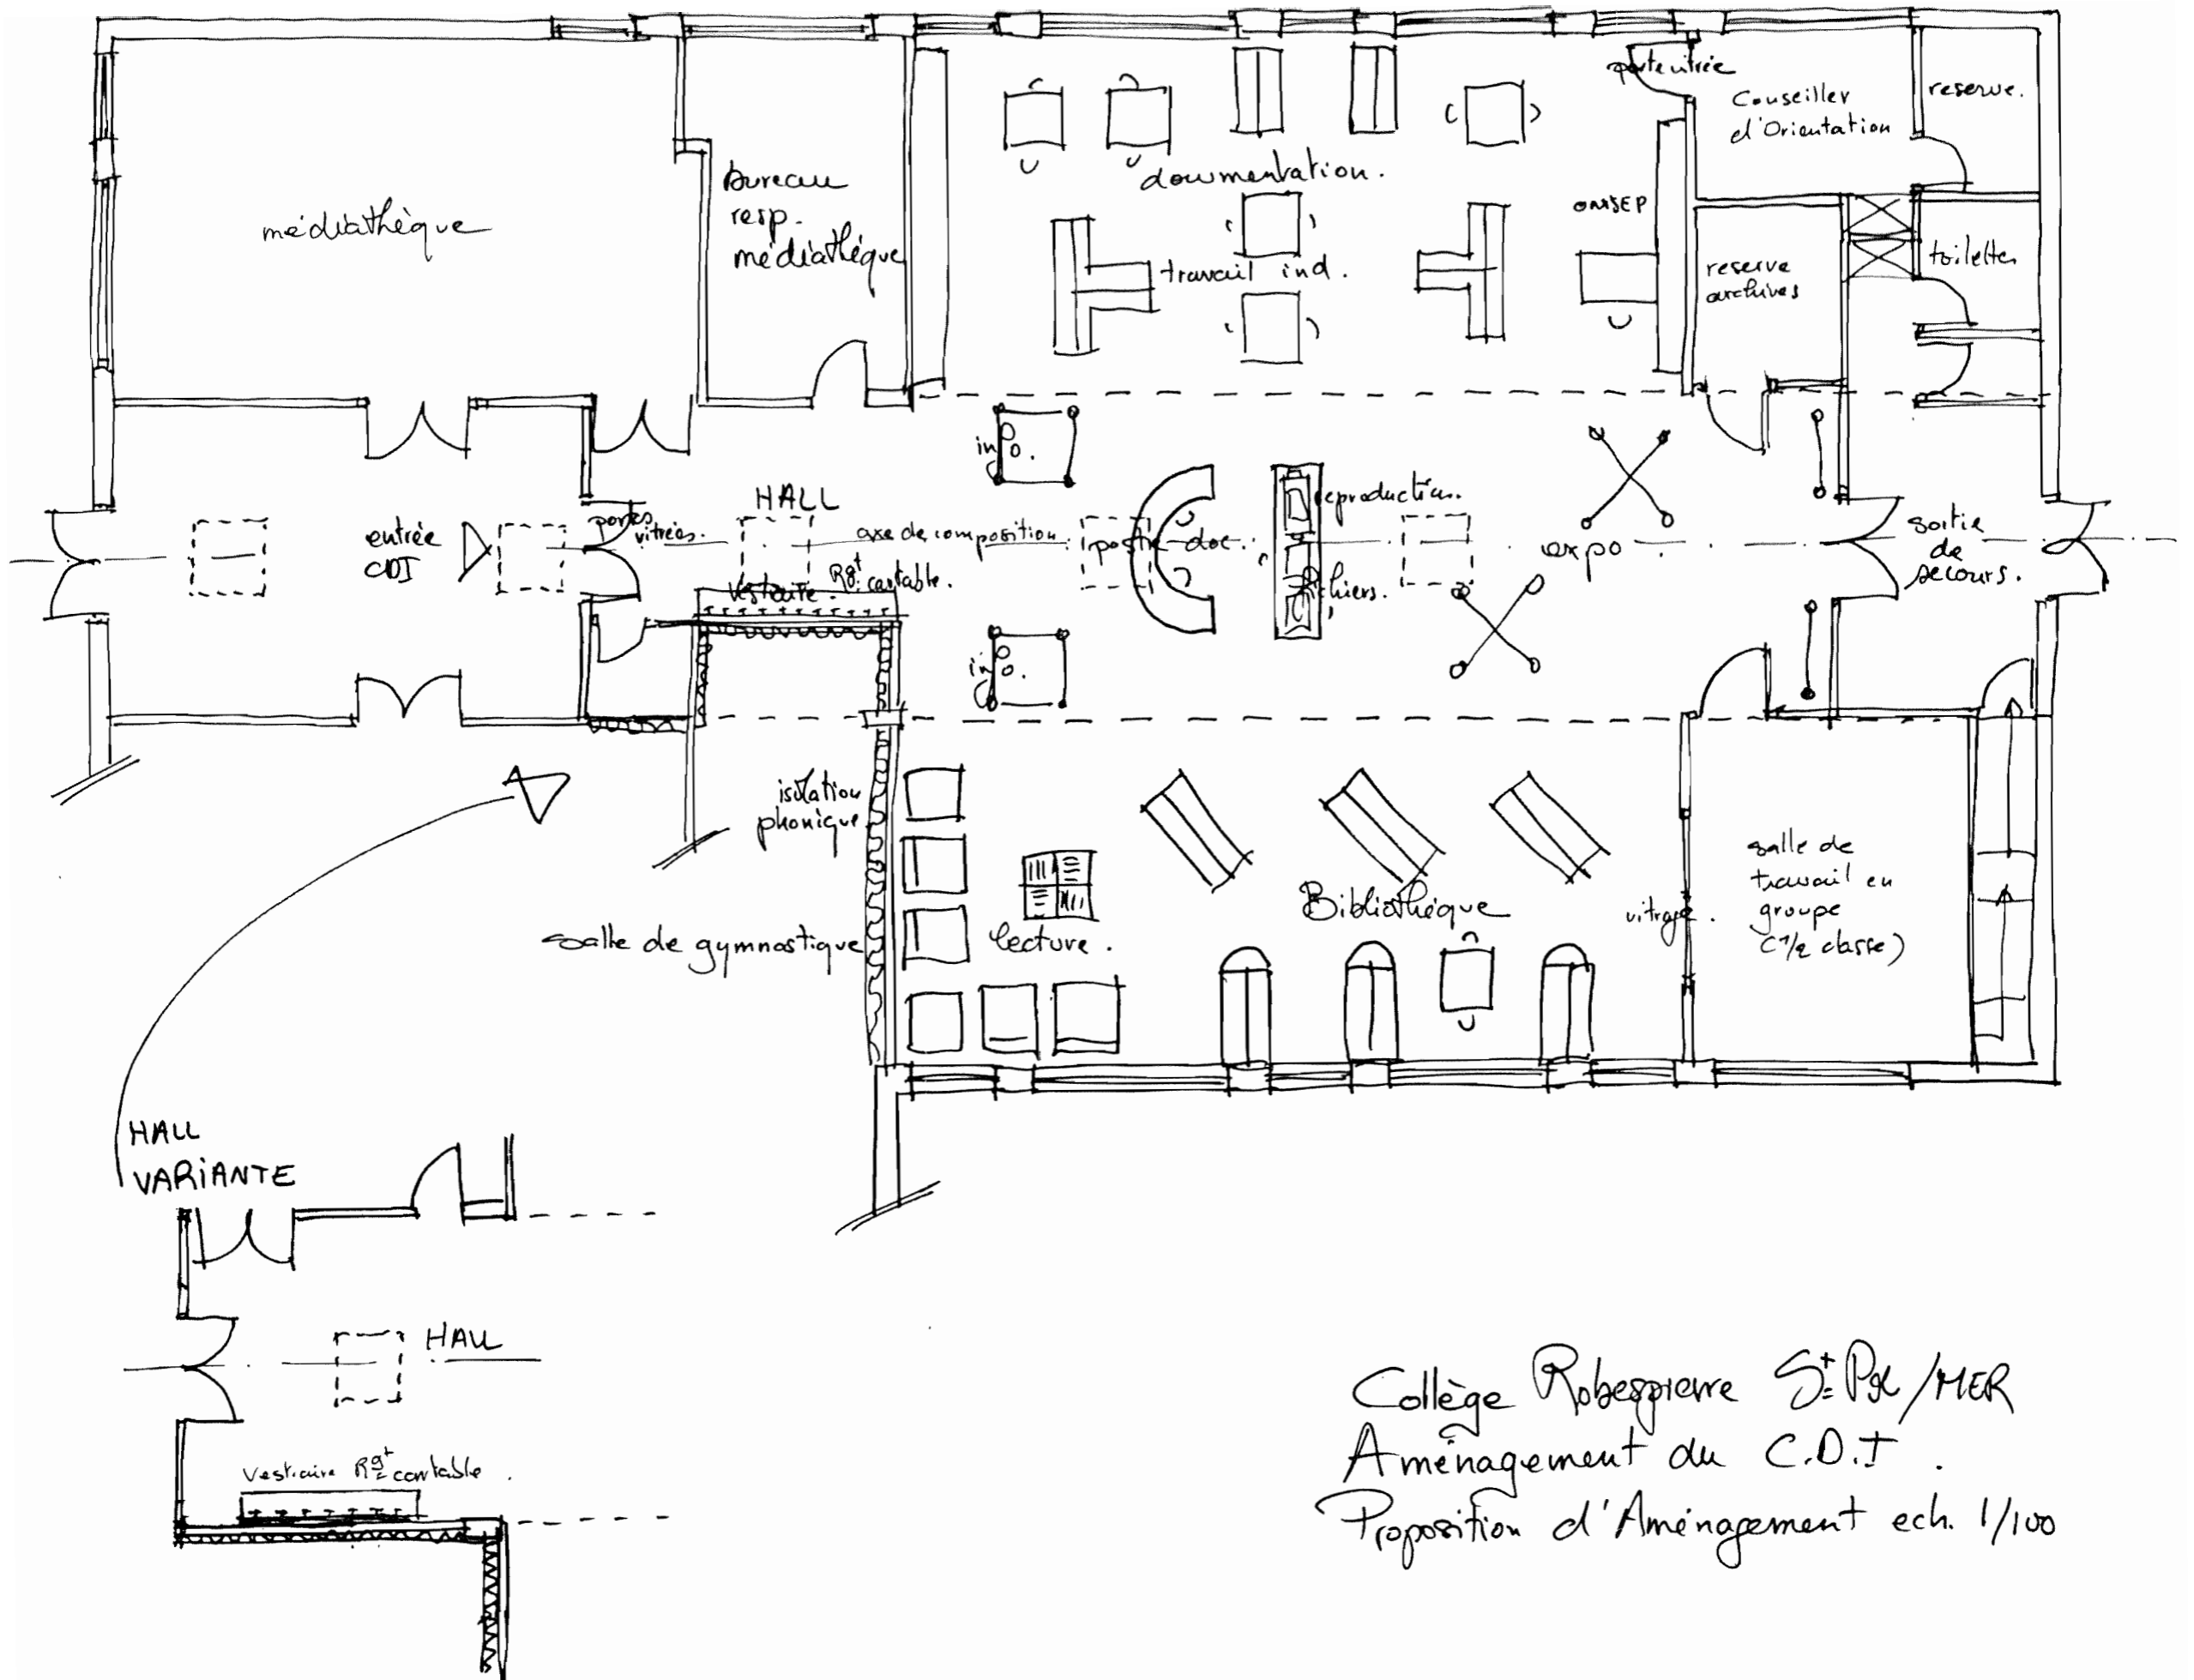 porte vitrée
Conseiller
d'Orientation
reserve.
médiathèque
bureau
resp.
médiathéque
documentation.
travail ind.
ONISEP
reserve
archives
toilettes
info.
HALL
portes
vitrées.
entrée
CDI
axe de composition
poste doc.
reproduction.
fichiers.
expo
sortie
de
secours.
vestiaire. Rgt cartable.
info.
isolation
phonique
salle de gymnastique
lecture.
Bibliothéque
vitrage.
salle de
travail en
groupe
(1/2 classe)
HALL
VARIANTE
HALL
Vestiaire Rgt cartable.
Collège Robespierre St /MER
Aménagement du C.D.I.
Proposition d'Aménagement ech. 1/100